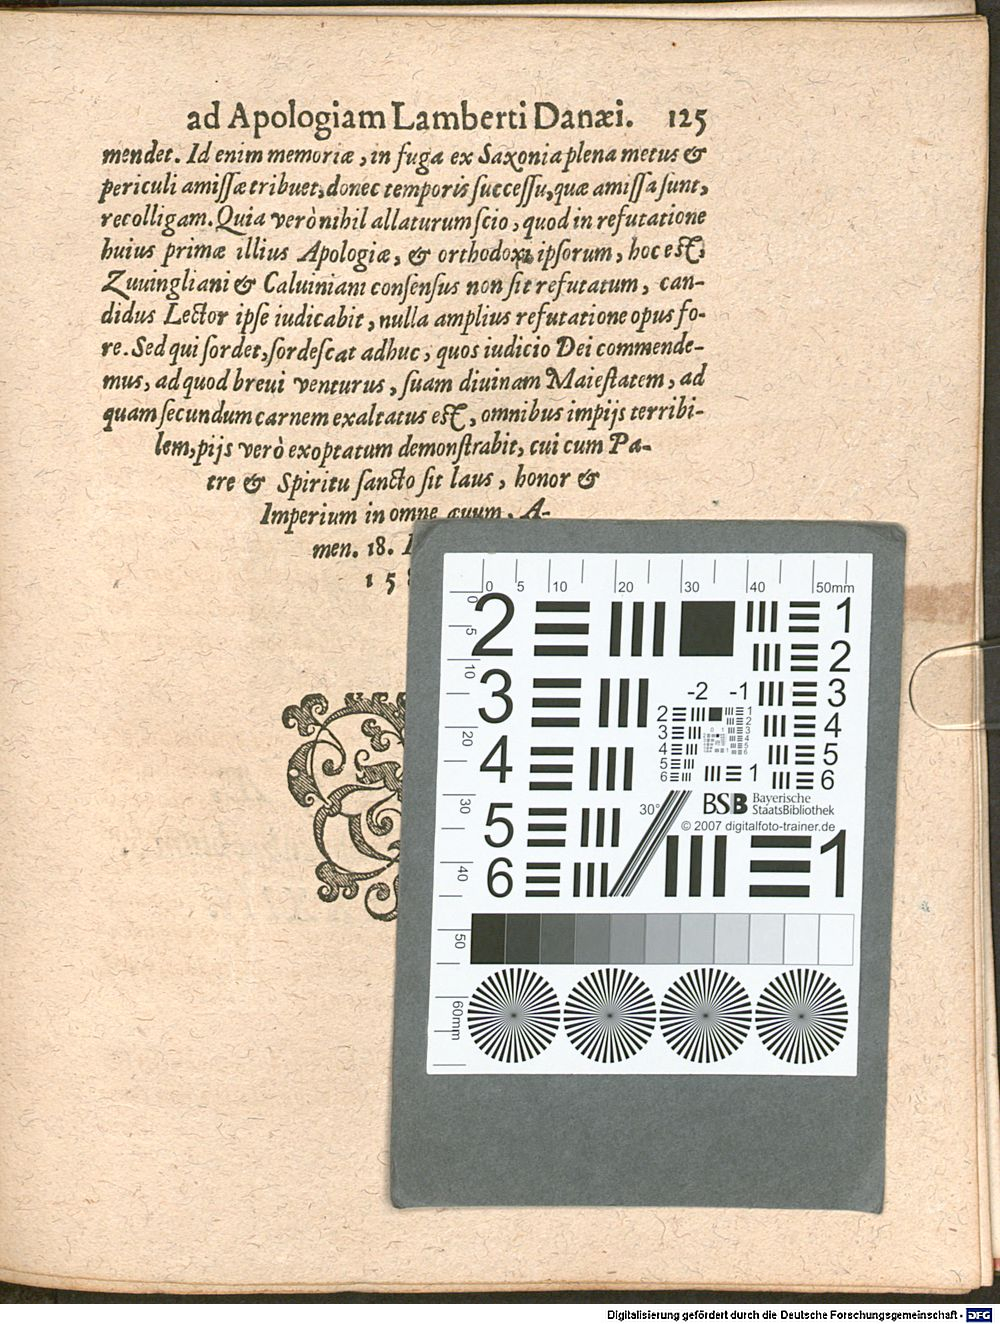 ad Apologiam Lamberti Danæi. 125
mendet. Id enim memoriæ, in fuga ex Saxonia plena metus &
periculi amiſſæ tribuet, donec temporis ſucceſſu, quæ amiſſa ſunt,
recolligam. Quia verò nihil allaturum ſcio, quod in refutatione
huius primæ illius Apologiæ, & orthodoxi ipſorum, hoc eſt,
Zuuingliani & Caluiniani conſenſus non ſit refutatum, can-
didus Lector ipſe iudicabit, nulla amplius refutatione opus fo-
re. Sed qui ſordet, ſordeſcat adhuc, quos iudicio Dei commende-
mus, ad quod breui venturus, ſuam diuinam Maieſtatem, ad
quam ſecundum carnem exaltatus eſt, omnibus impijs terribi-
lem, pijs verò exoptatum demonſtrabit, cui cum Pa-
tre & Spiritu ſancto ſit laus, honor &
Imperium in omne æuum. A-
men. 18.
1 5
0 5 10 20 30 40 50mm
0 5 10 20 30 40 50 60mm
2 1
2
3 3
-2 -1
4 4
5 5
6 6
2 1
3 2
4 3
5 4
6 5
6
1
30°
BSB Bayerische
StaatsBibliothek
© 2007 digitalfoto-trainer.de
1
Digitalisierung gefördert durch die Deutsche Forschungsgemeinschaft - DFG